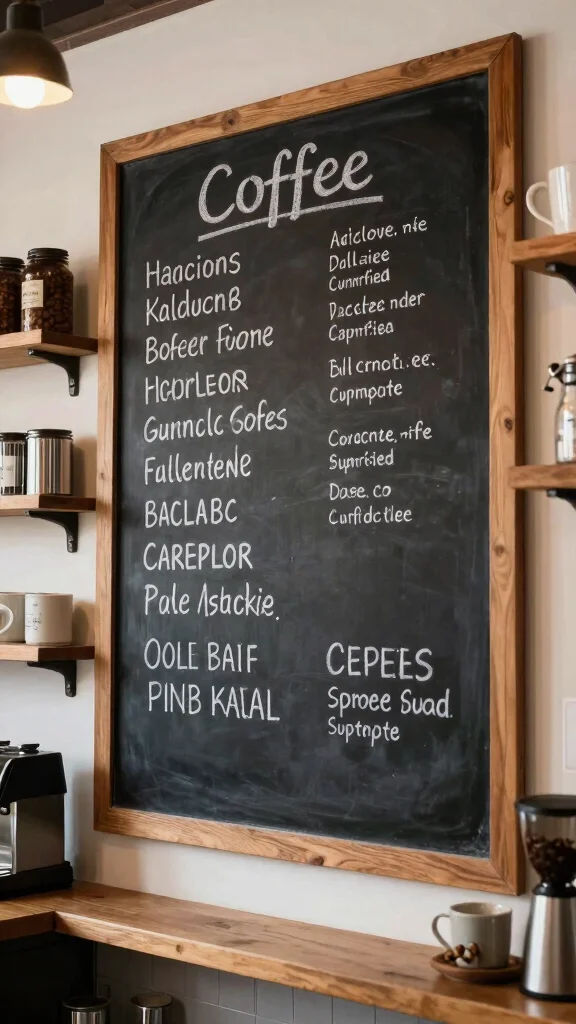 Coffee
Haacions
KalducnB
Bofeer Fuone
HcorLEOR
Gunnclc Gofes
FallenteNe
BACLABC
CAREPLOR
Pale Astackie.
OOLE BAIF
PINB KALAL
Adiclove. nfe
Dallaiee
Cumrified
Dacctze nder
Capmfiea
Bill crnoti..ee.
Cympmpate
Coracnte, nife
Supriried
Dase. co
Curfidctlee
CEPEES
Sproee Suad.
Suptnpte